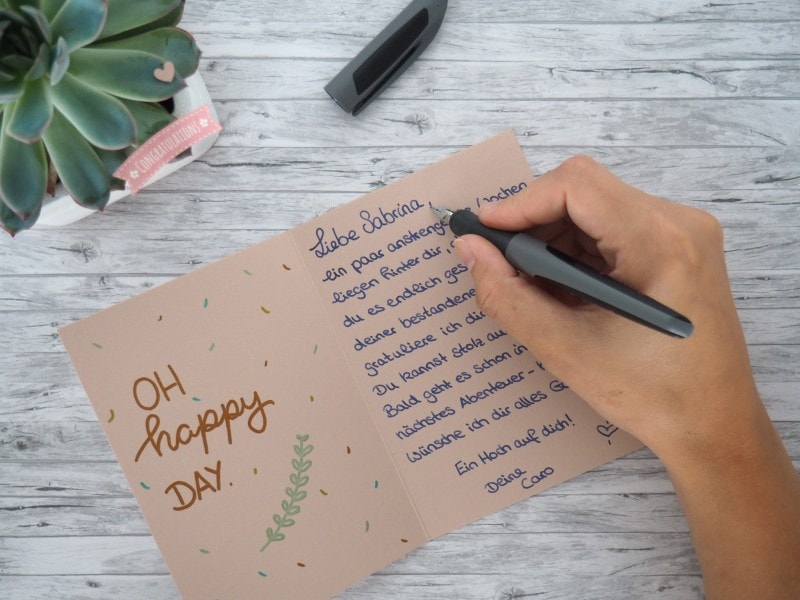 CONGRATULATIONS
OH
happy
DAY.
Liebe Sabrina
ein paar anstreng
liegen hinter dir
du es endlich ges
deiner bestandene
gratuliere ich dir
Du kannst stolz au
Bald geht es schon in
nächstes Abenteuer -
wünsche ich dir alles G
Ein Hoch auf dich!
Deine
Caro